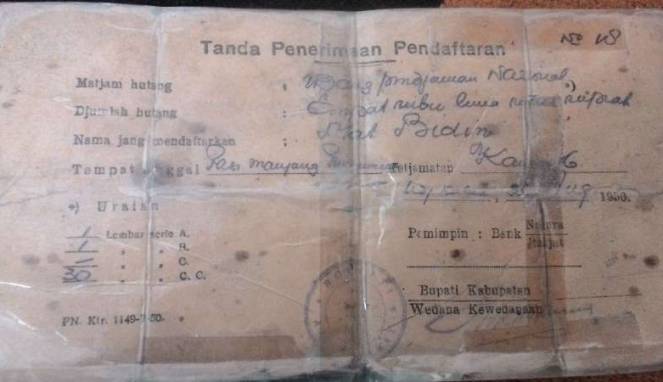 No 18
Tanda Penerimaan Pendaftaran
Matjam hutang : Uang pindjaman Nasional *)
Djumlah hutang : Empat ribu lima ratus rupiah
Nama jang mendaftarkan : Mat Bidin
Tempat tinggal Ketjamatan
1950.
*) Uraian
1 Lembar serie A.
1 " " B.
" " C.
30 " " C. C.
Pemimpin : Bank Negara
Rakjat
Bupati Kabupaten
Wedana Kewedanaan
PN. Ktr. 1149-7-50.